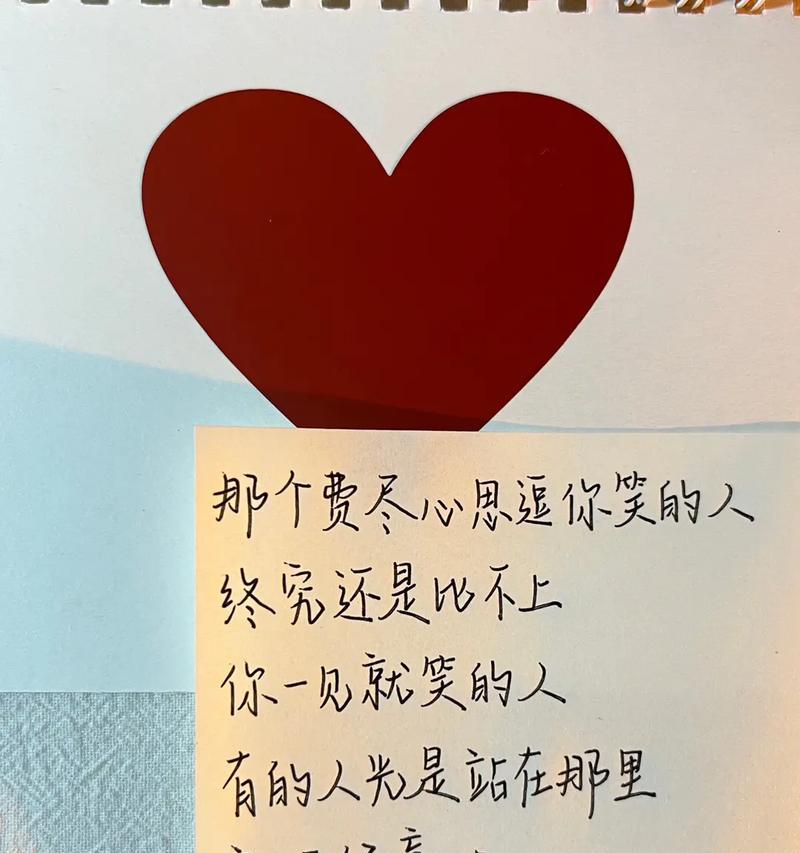 那个费尽心思逗你笑的人
终究还是比不上
你一见就笑的人
有的人光是站在那里